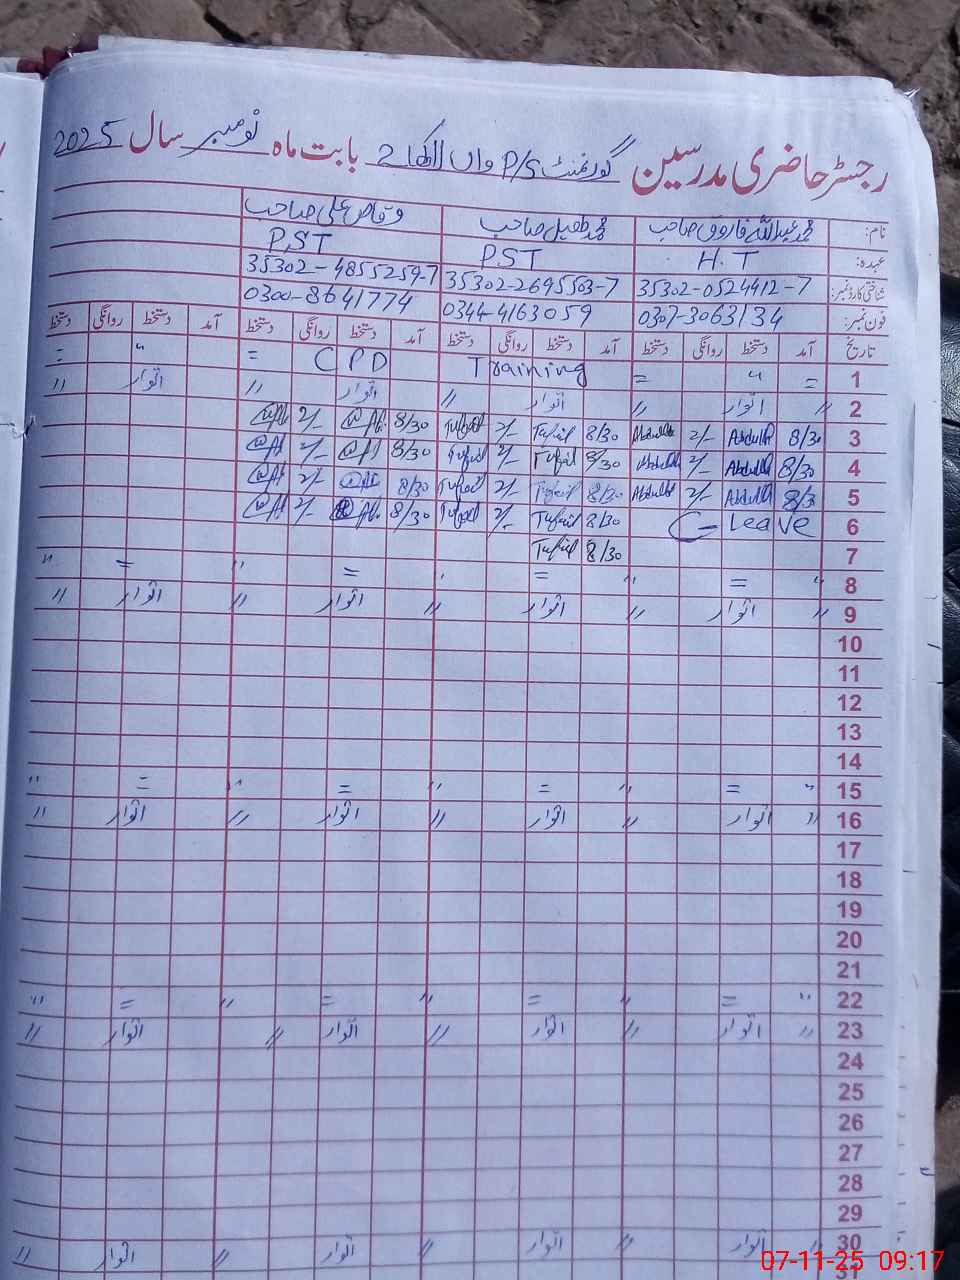 رجسٹر حاضری مدرسین گورنمنٹ P/S واں رادھا 2 بابت ماہ نومبر سال 2025
نام: محمد عبداللہ فاروق صاحب محمد طفیل صاحب وقاص علی صاحب
عہدہ: H.T PST PST
شناختی کارڈ نمبر: 35302-0524412-7 35302-2695503-7 35302-4855259-7
فون نمبر: 0307-3063134 0344-4163059 0300-8641774
تاریخ آمد دستخط روانگی دستخط آمد دستخط روانگی دستخط آمد دستخط روانگی دستخط آمد دستخط روانگی دستخط
1 = " = Training CPD = " =
2 " اتوار " اتوار " اتوار " اتوار "
3 8/30 Abdullah 2/- Abdullah 8/30 Tufail 2/- Tufail 8/30 2/-
4 8/30 Abdullah 2/- Abdullah 8/30 Tufail 2/- Tufail 8/30 2/-
5 8/30 Abdullah 2/- Abdullah 8/30 Tufail 2/- Tufail 8/30 2/-
6 C-Leave 8/30 Tufail 2/- Tufail 8/30 2/-
7 8/30 Tufail
8 " = " = " = " = "
9 " اتوار " اتوار " اتوار " اتوار "
10
11
12
13
14
15 " = " = " = " = "
16 " اتوار " اتوار " اتوار " اتوار "
17
18
19
20
21
22 " = " = " = " = "
23 " اتوار " اتوار " اتوار " اتوار "
24
25
26
27
28
29
30 " اتوار " اتوار " اتوار " اتوار "
31
07-11-25 09:17